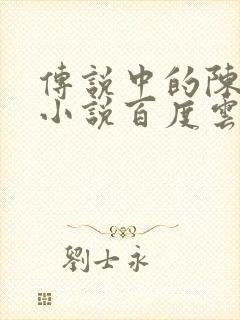 傳說中的陳
小說百度雲
劉士永